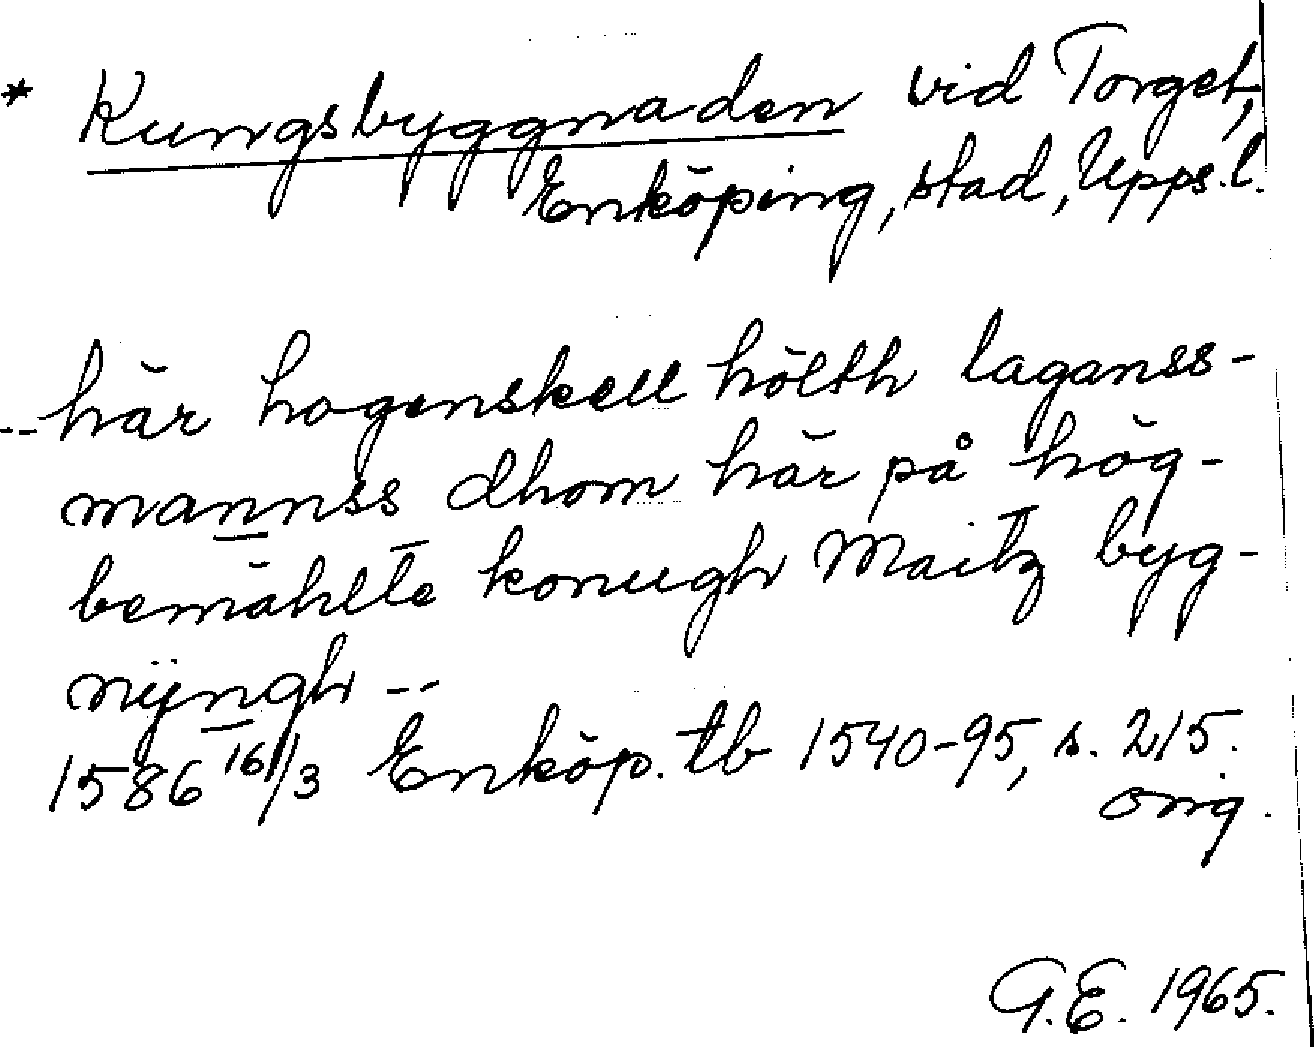 * Kungsbyggnaden vid Torget,
Enköping, stad, Upps.l.
-- här hogenskell hölth laganss-
mannss dhom här på hög-
bemählte konugh Maitz byg-
nÿngh --
1586 16/3 Enköp. tb 1540-95, s. 215.
orig.
G.E. 1965.